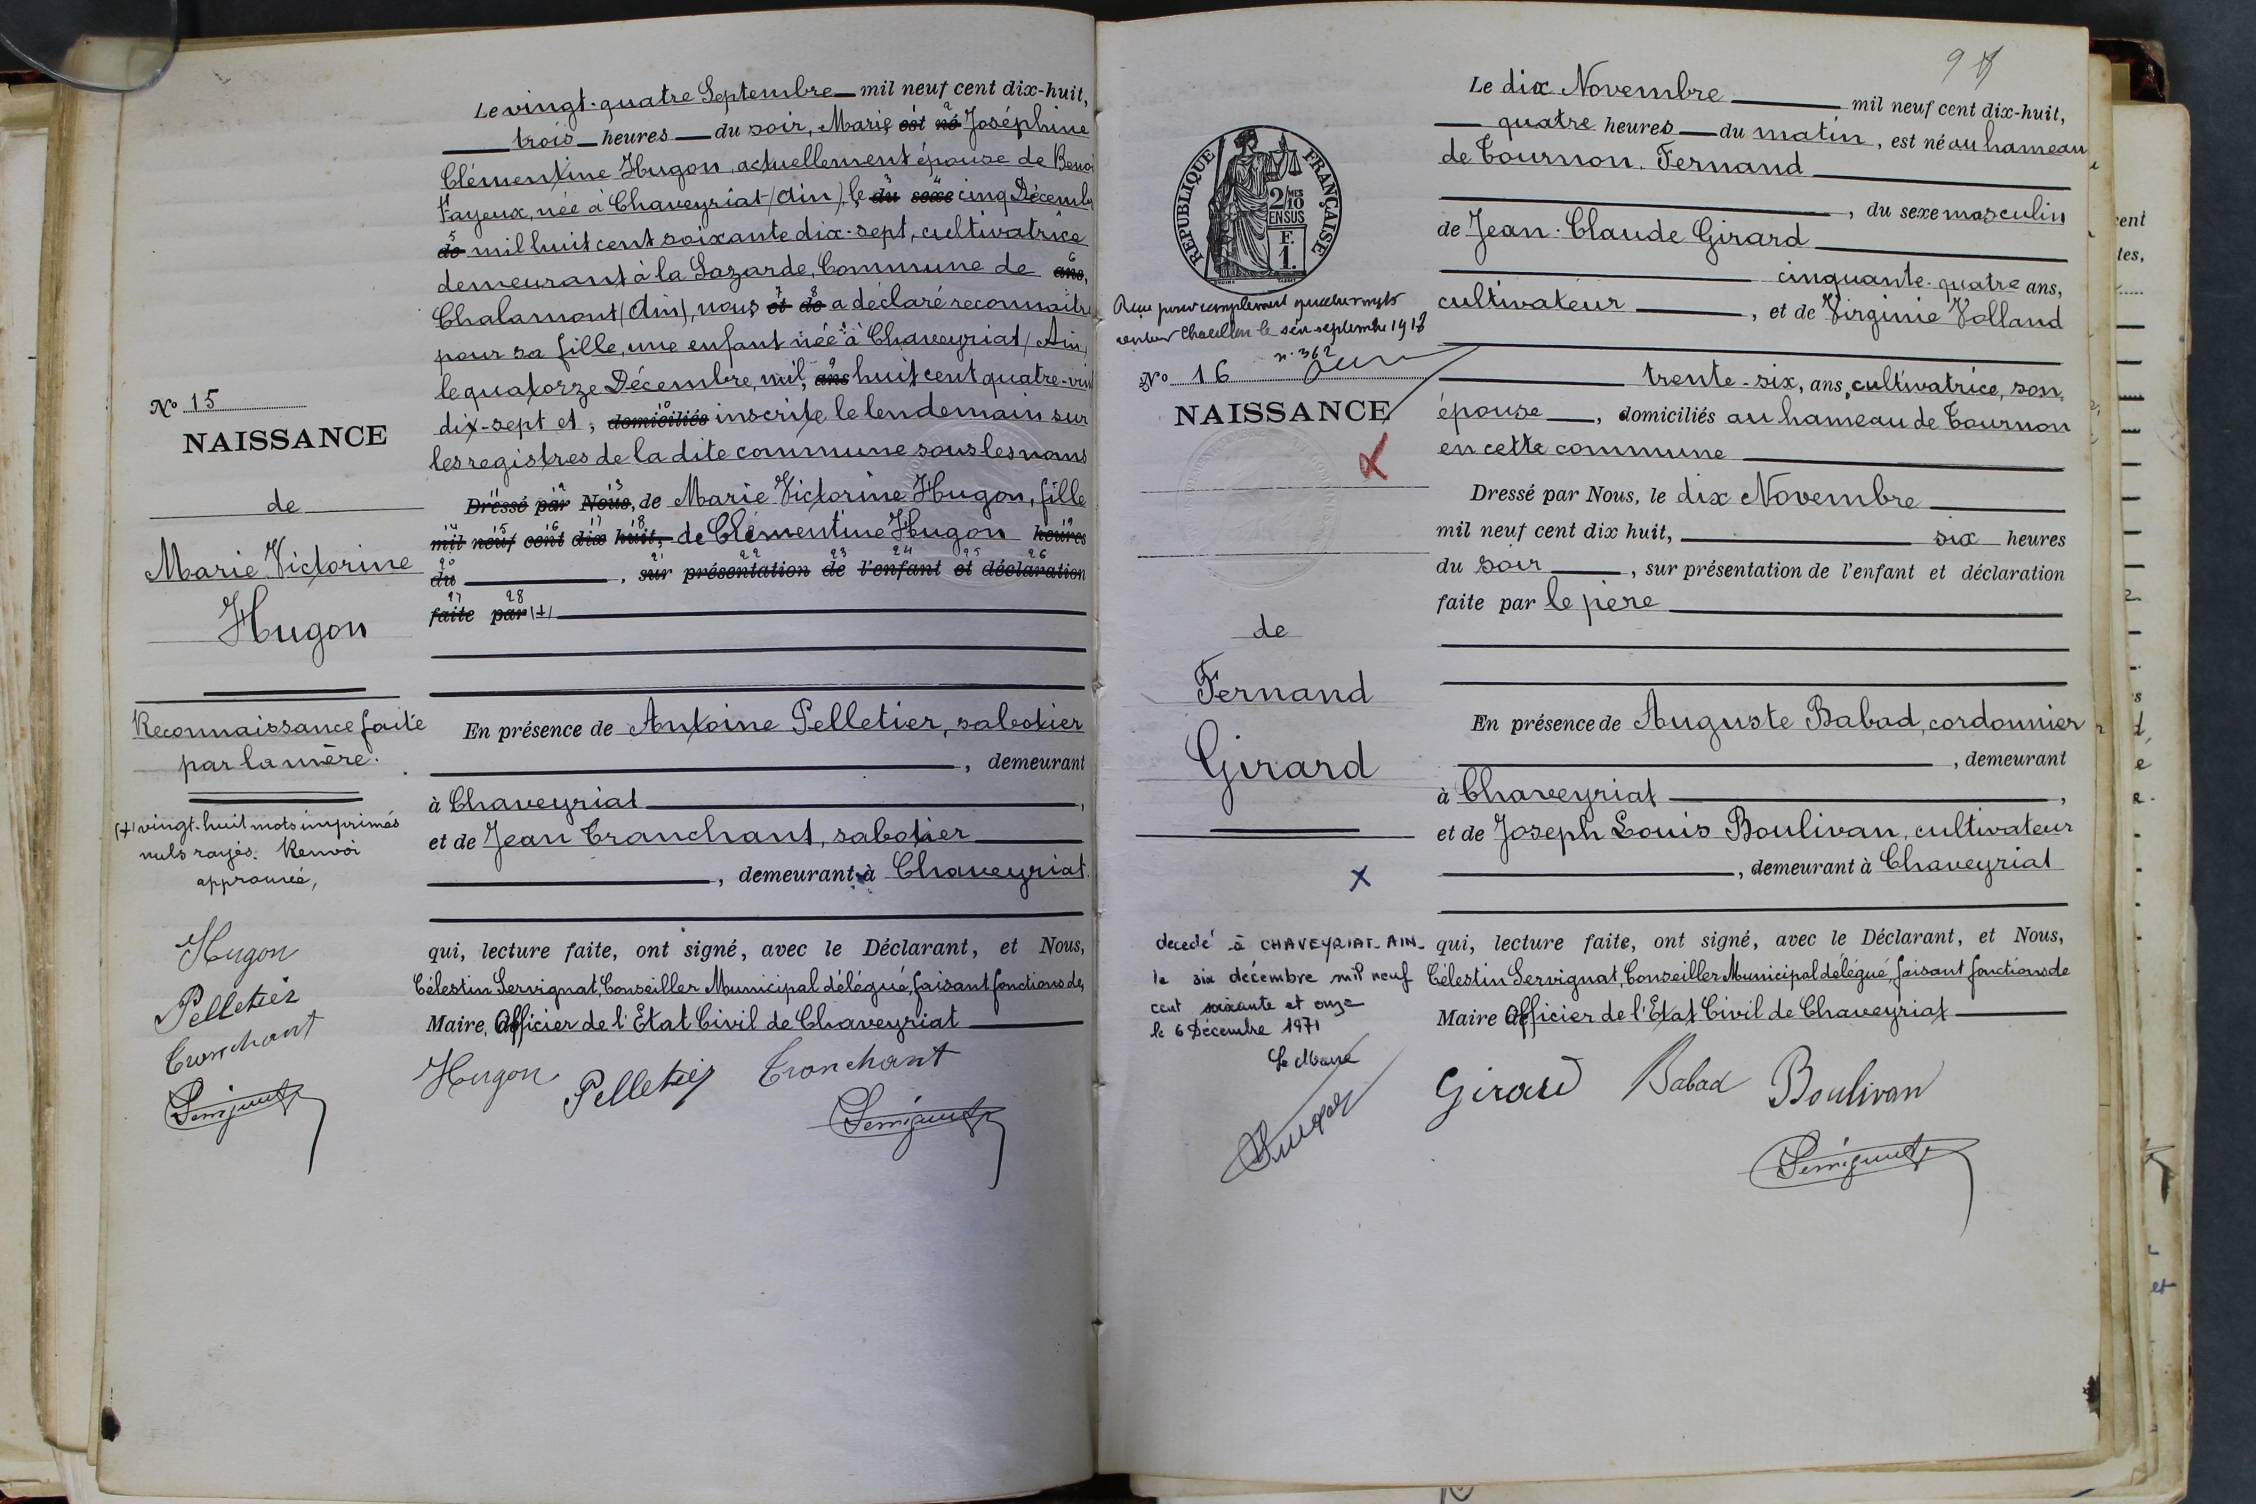 Le vingt-quatre Septembre mil neuf cent dix-huit,
trois heures du soir, Marie est né Joséphine
Clémentine Hugon, actuellement épouse de Benoi
Fayeux, née à Chaveyriat (Ain), le du sexe cinq Décembr
de mil huit cent soixante dix-sept, cultivatrice
demeurant à la Lazarde, Commune de ans,
Chalamont (Ain), nous et de a déclaré reconnaitre
pour sa fille, une enfant née à Chaveyriat (Ain)
le quatorze Décembre, mil, ans huit cent quatre-vin
dix-sept et, domiciliés inscrite le lendemain sur
les registres de la dite commune sous les noms
Dressé par Nous, de Marie Victorine Hugon, fille
mil neuf cent dix huit, de Clémentine Hugon heures
du, sur présentation de l'enfant et déclaration
faite par (+)
En présence de Antoine Pelletier, sabotier
, demeurant
à Chaveyriat,
et de Jean Tranchant, sabotier
, demeurant à Chaveyriat.
qui, lecture faite, ont signé, avec le Déclarant, et Nous,
Célestin Servignat, Conseiller Municipal délégué, faisant fonctions de
Maire, Officier de l'Etat Civil de Chaveyriat
Hugon Pelletier Tronchant
Servignat
No 15
NAISSANCE
de
Marie Victorine
Hugon
Reconnaissance faite
par la mère.
(+) vingt-huit mots imprimés
nuls rayés. Renvoi
approuvé,
Hugon
Pelletier
Tronchant
Servignat
98
Le dix Novembre mil neuf cent dix-huit,
quatre heures du matin, est né au hameau
de Tournon, Fernand
, du sexe masculin
de Jean-Claude Girard
cinquante-quatre ans,
cultivateur, et de Virginie Volland
trente-six, ans, cultivatrice, son
épouse, domiciliés au hameau de Tournon
en cette commune
Dressé par Nous, le dix Novembre
mil neuf cent dix huit, six heures
du soir, sur présentation de l'enfant et déclaration
faite par le père
En présence de Auguste Babad, cordonnier
, demeurant
à Chaveyriat,
et de Joseph Louis Boulivan, cultivateur
, demeurant à Chaveyriat
qui, lecture faite, ont signé, avec le Déclarant, et Nous,
Célestin Servignat, Conseiller Municipal délégué, faisant fonctions de
Maire Officier de l'Etat Civil de Chaveyriat
Girard Babad Boulivan
Servignat
RÉPUBLIQUE FRANÇAISE
2/10 MES
EN SUS
F.
1.
pour complément
le six septembre 1918
n° 362
No 16
NAISSANCE
de
Fernand
Girard
X
decedé à CHAVEYRIAT-AIN-
le six décembre mil neuf
cent soixante et onze
le 6 Décembre 1971
Le Maire